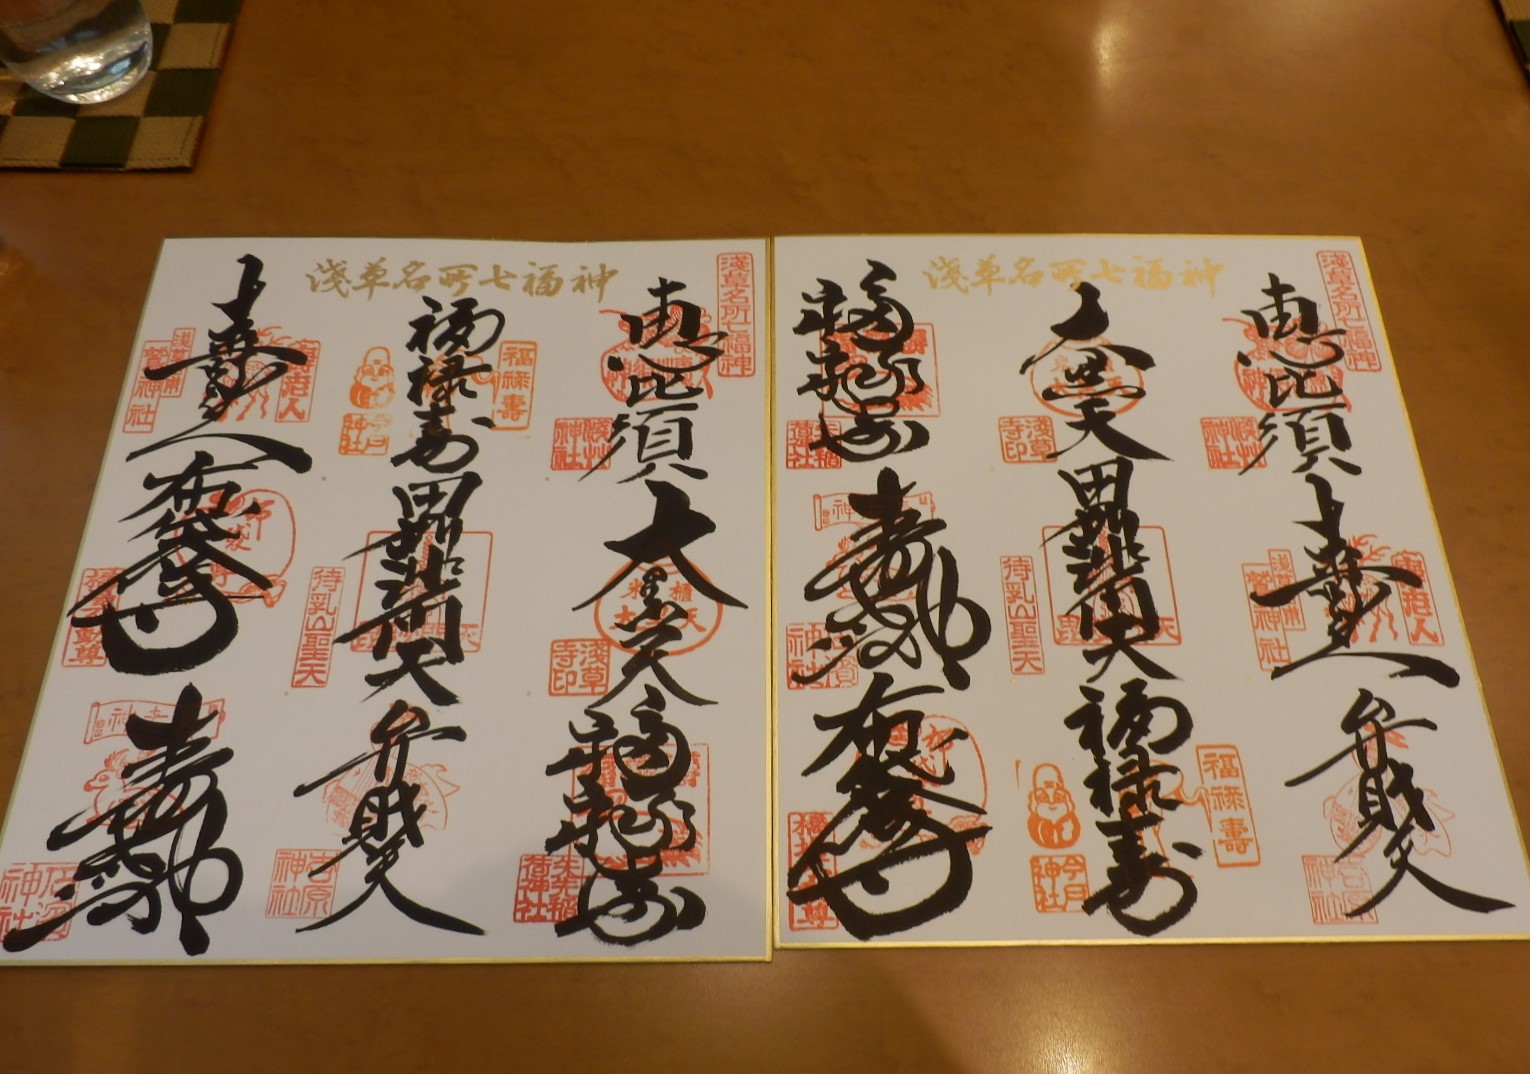 浅草名所七福神
浅草名所七福神
恵比須
浅草神社
大黒天
浅草寺印
福禄寿
福禄寿
福禄寿
今戸神社
毘沙門天
待乳山聖天
弁財天
吉原神社
寿老人
寿老人
布袋尊
寿老神
石浜神社
浅草名所七福神
浅草名所七福神
恵比須
浅草神社
寿老人
寿老人
弁財天
吉原神社
大黒天
浅草寺印
毘沙門天
待乳山聖天
福禄寿
福禄壽
今戸神社
福禄寿
寿老神
布袋尊